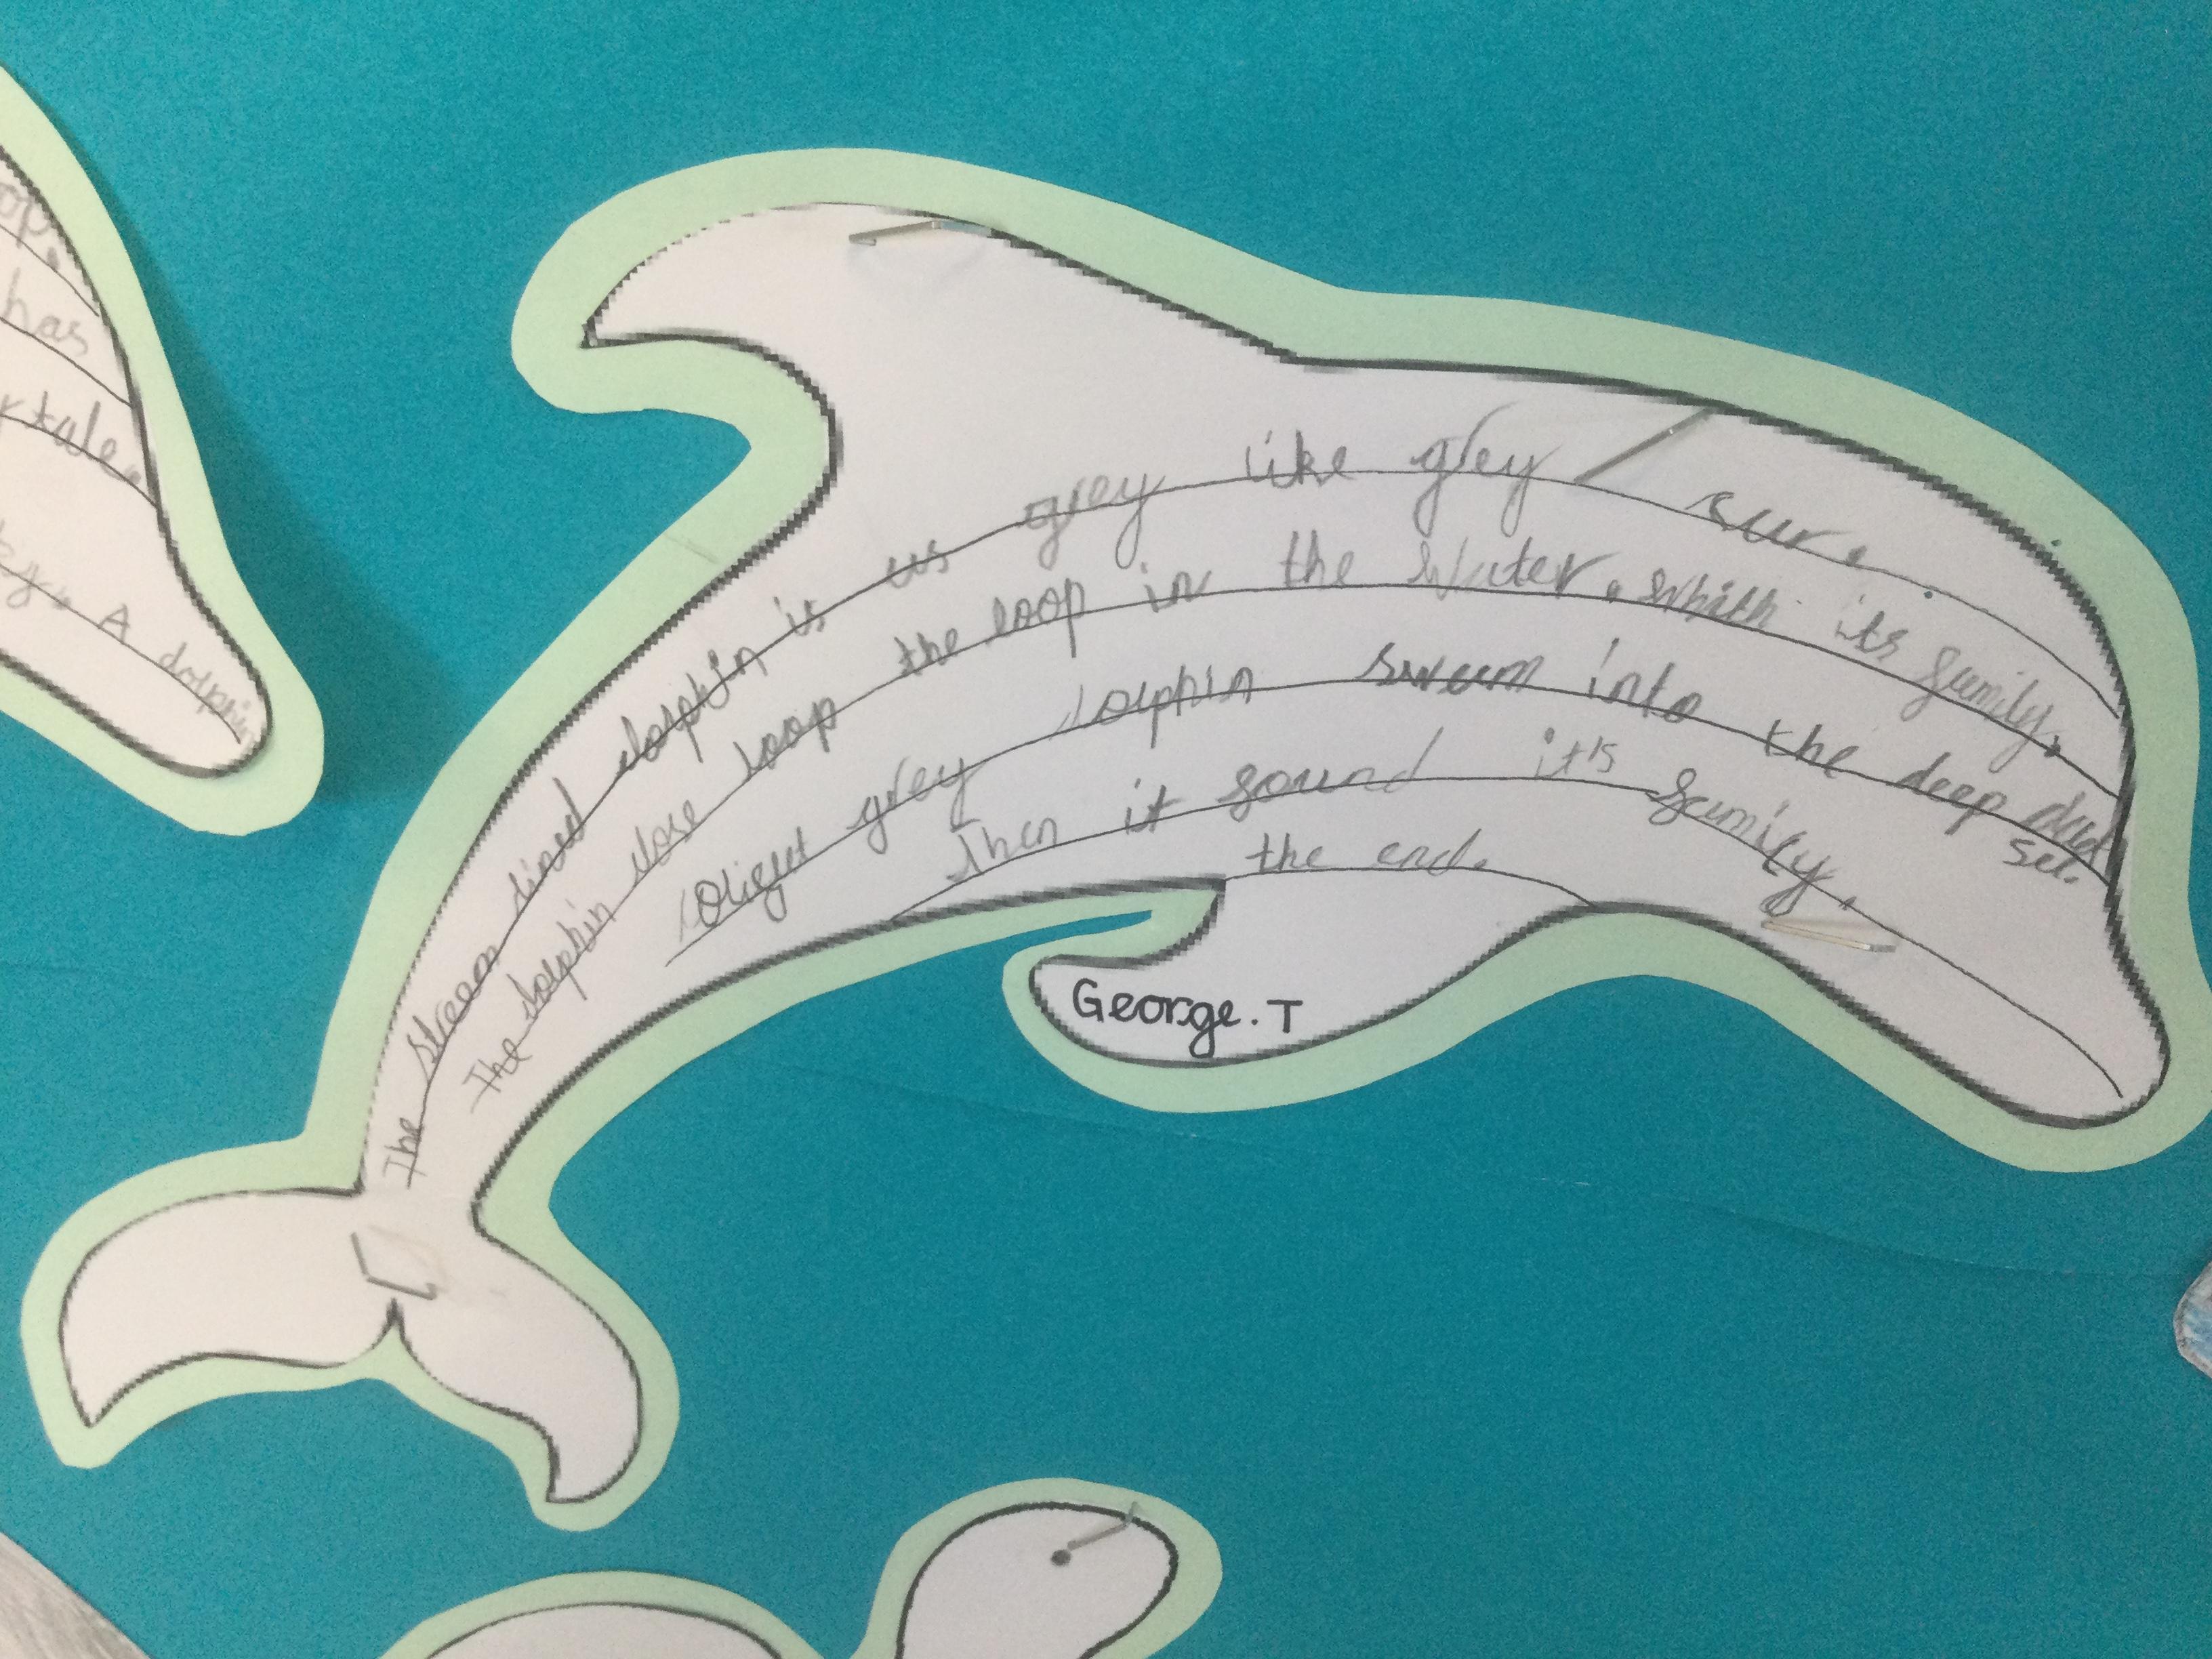 op.
has
tale.
A dolphin
The stream lined dolphin is as grey like grey
The dolphin dose loop the loop in the water. whith its family.
grey dolphin sweam into the deep
sea.
Then it found it's family.
the end.
George. T